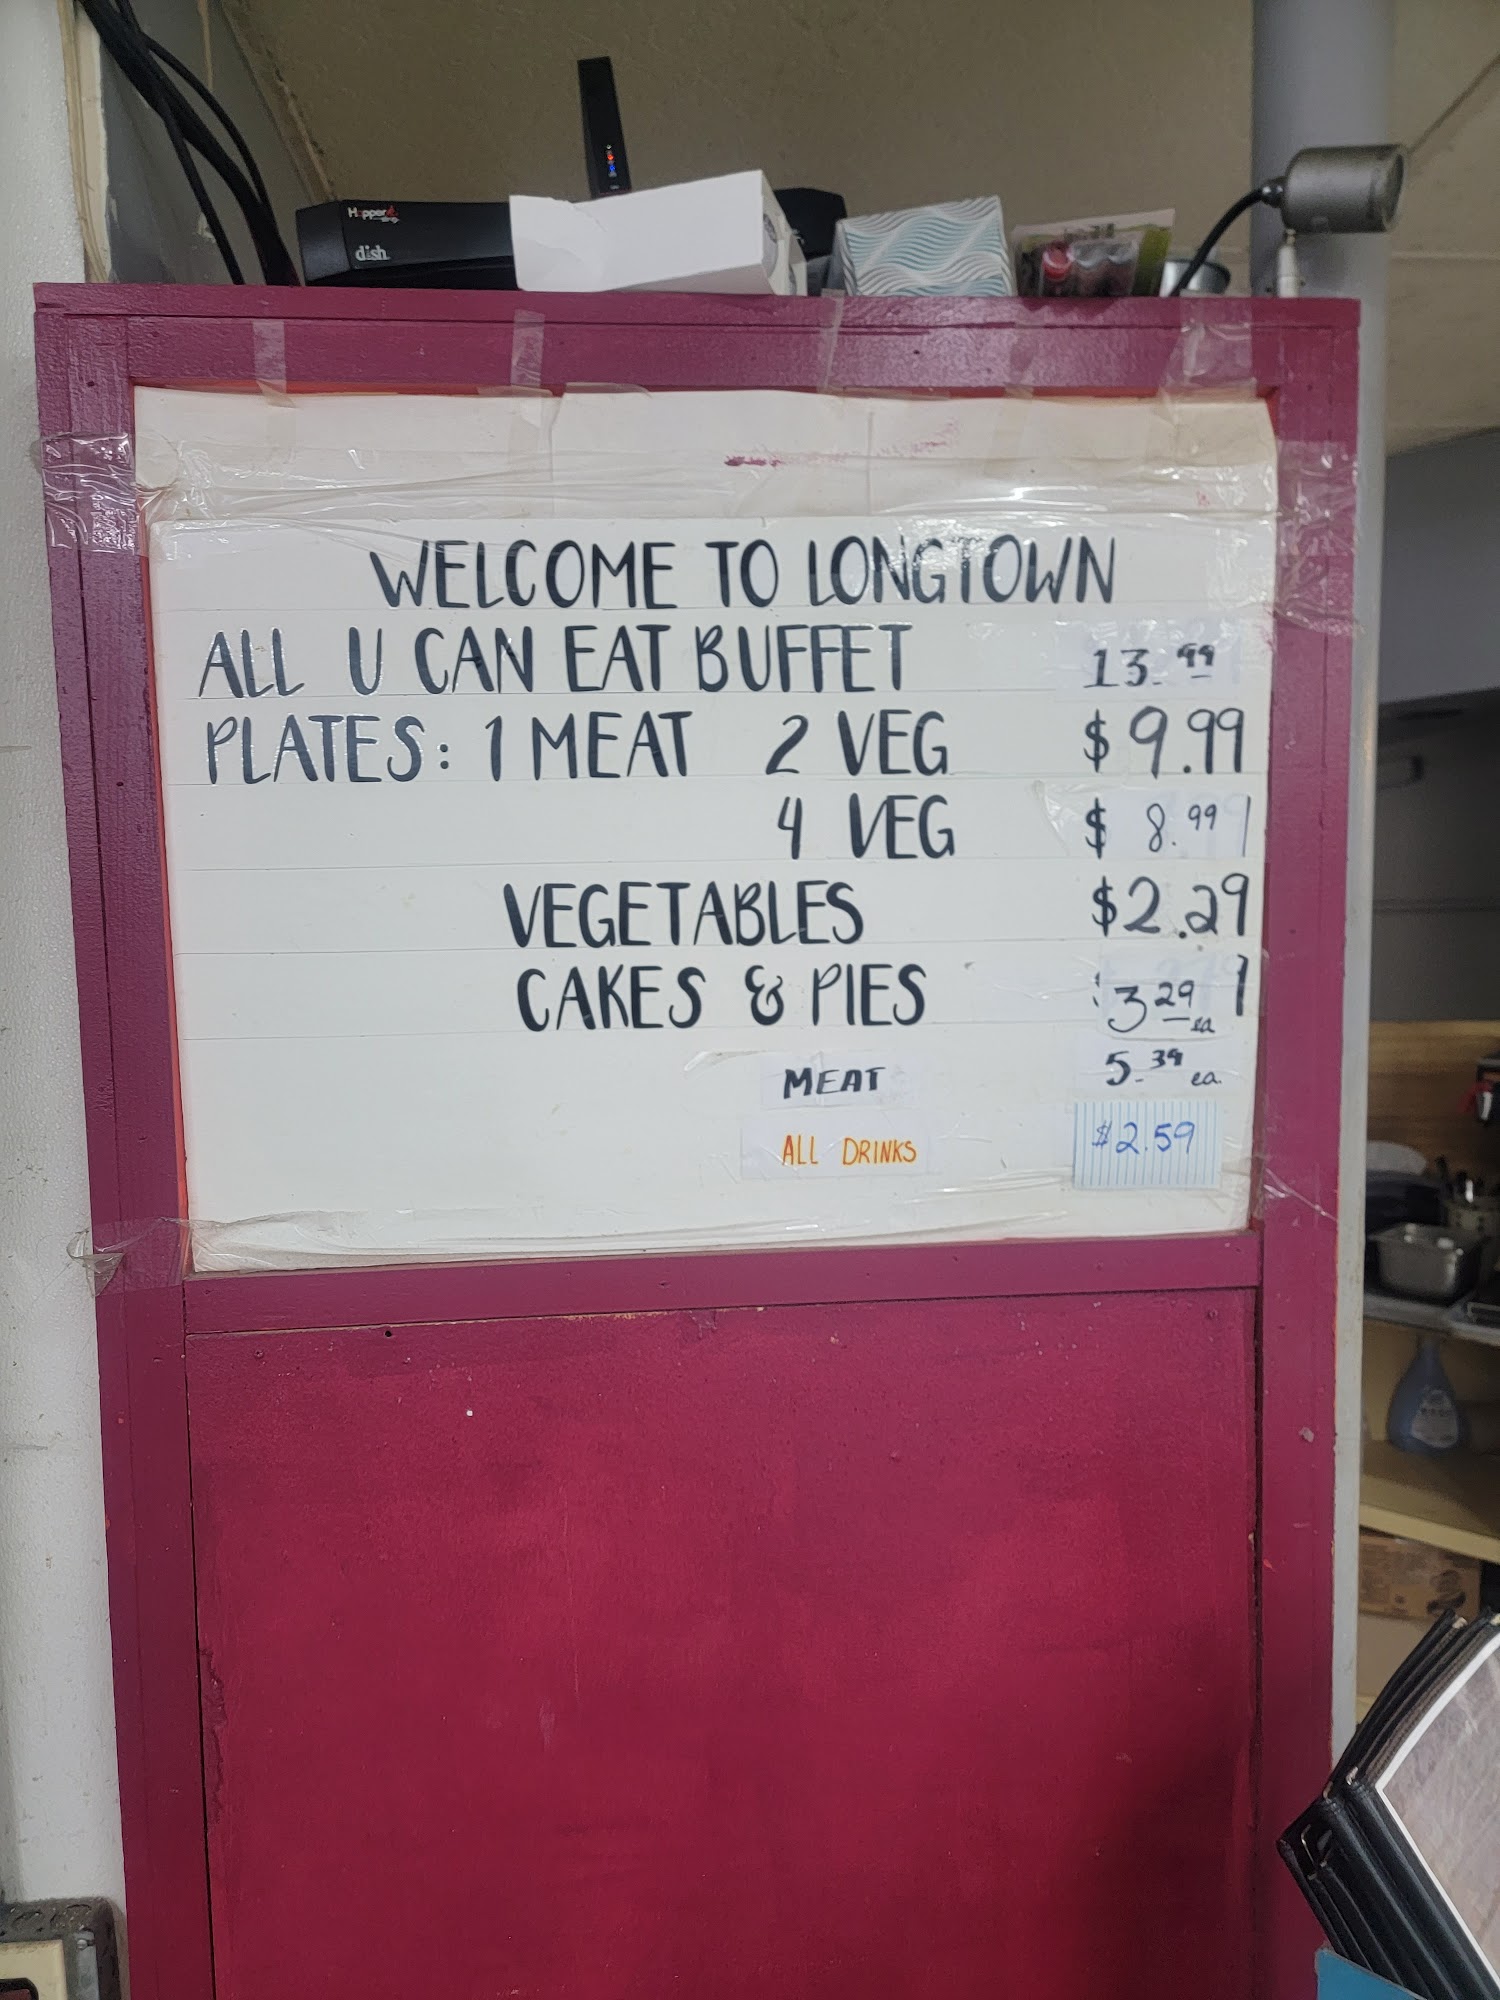 Hopper
dish
WELCOME TO LONGTOWN
ALL U CAN EAT BUFFET 13.99
PLATES: 1 MEAT 2 VEG $9.99
4 VEG $ 8.99
VEGETABLES $2.29
CAKES & PIES 3 29 ea
MEAT 5.39 ea.
ALL DRINKS $2.59